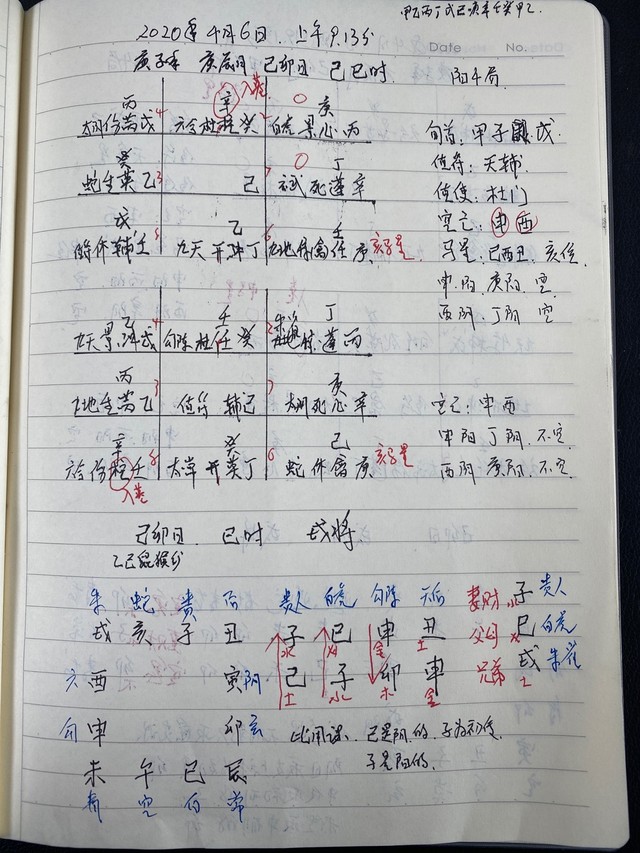 甲乙丙丁戊己庚辛壬癸甲乙
2020年4月6日.上午9.13分
Date No.
庚子年 庚辰月 己卯日 己巳时 阳4局
丙 辛 入墓 〇 庚
伤 戊 4 六合 柱 癸 2 白虎 景 心 丙
旬首:甲子 戊
值符:天辅
癸 〇 丁
蛇 生 英 乙 3 己 7 玄武 死 蓬 辛
值使:杜门
空亡:申 酉
戊 乙 壬
休 辅 壬 8 九天 开 冲 丁 6 九地 任 庚
马星:巳酉丑.亥位
申.阴.庚阳.空
酉阴 丁阴 空
乙 壬 丁
九天 景 冲 戊 4 勾陈 柱 任 癸 2 蓬 丙
丙 庚
九地 生 乙 3 值符 辅 己 7 死 心 辛
空亡:申 酉
申阳 丁阴.不空
辛 癸 己
六合 伤 柱 壬 8 开 英 丁 6 蛇 休 禽 庚
酉阴 庚阳.不空
入墓
己卯日. 巳时 戌将
朱 蛇 贵 后 贵人 白虎 勾陈 天后 妻财 水 子 贵人
戌 亥 子 丑 子 巳 申 丑 父母 火 巳 白虎
水 火 金 土
六 酉 寅 阴 己 子 卯 申 兄弟 土 戌 朱雀
土 水 木 金
勾 申 卯 玄 比用课.己是阴的.子为初传
子是阳的.
未 午 巳 辰
青 空 白 常